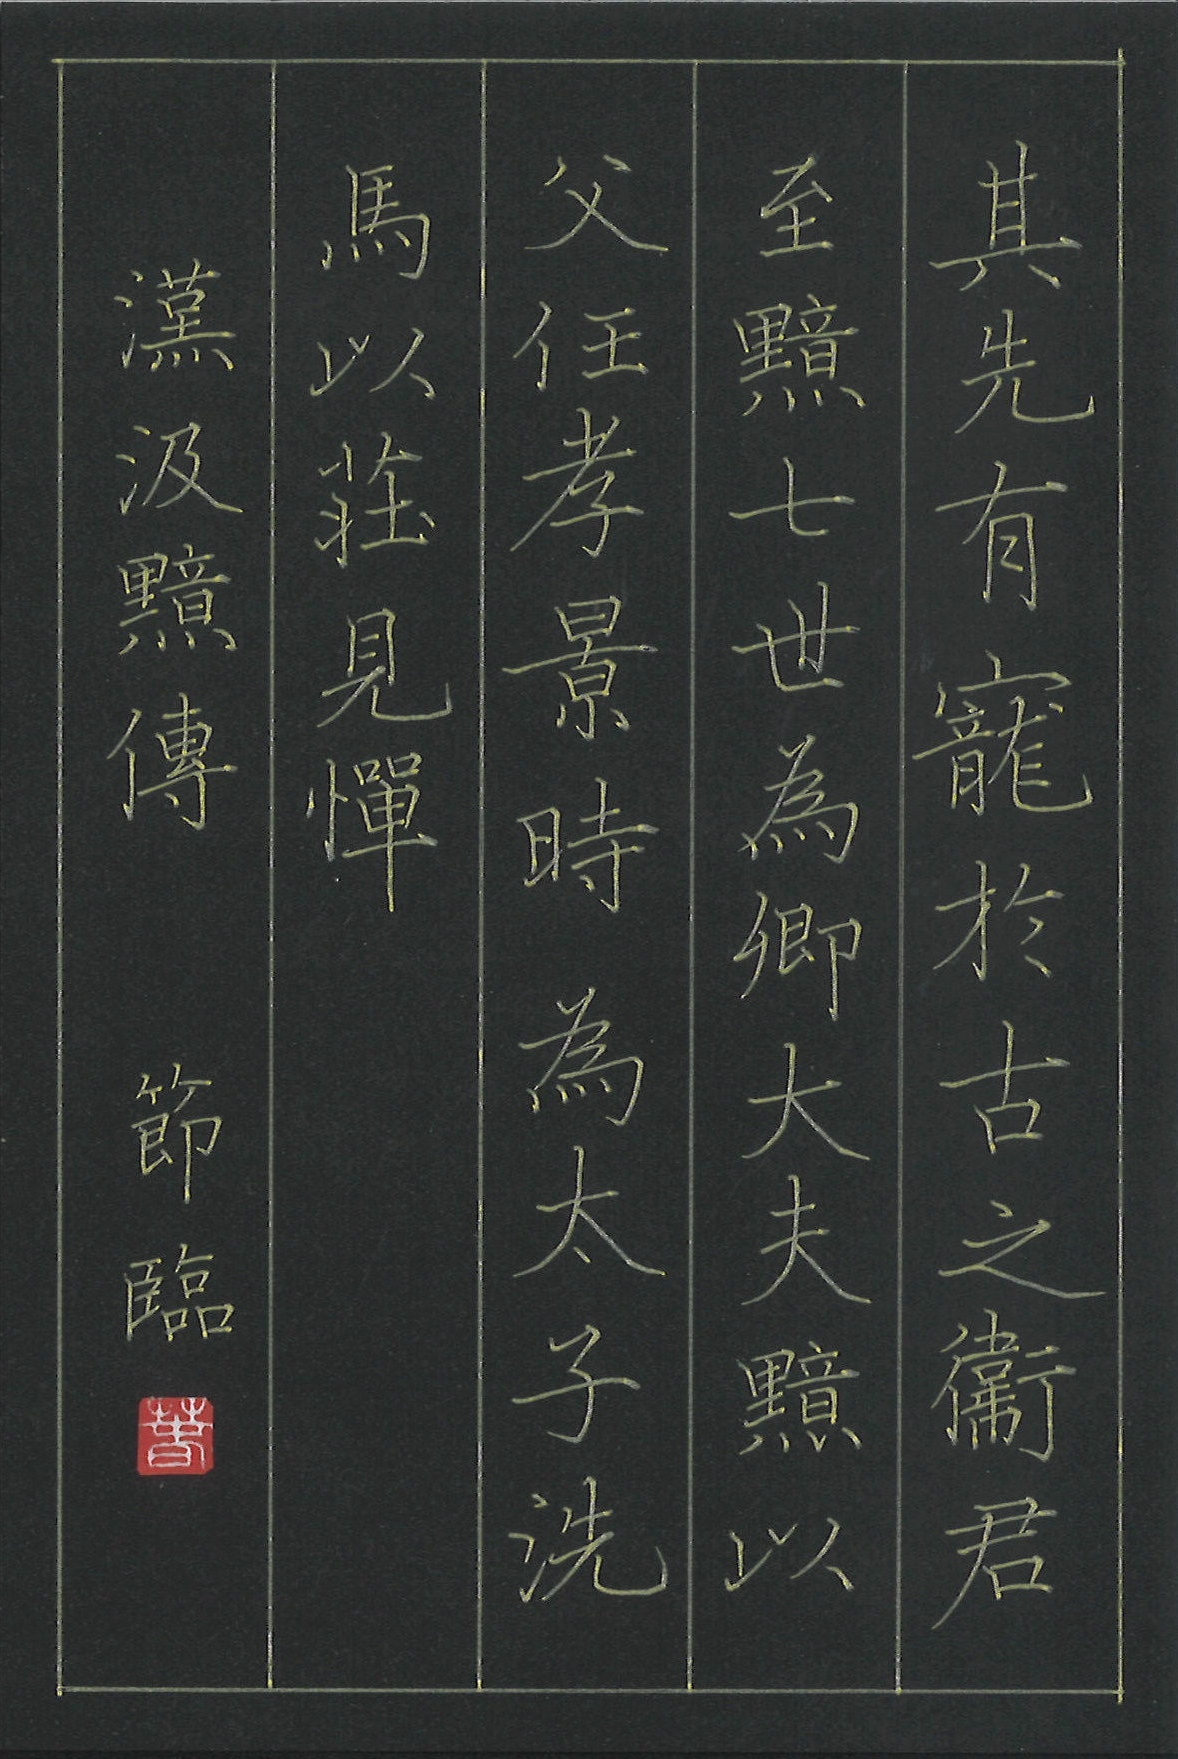 其先有寵於古之衞君
至黯七世為卿大夫黯以
父任孝景時為太子洗
馬以莊見憚
漢汲黯傳 節臨